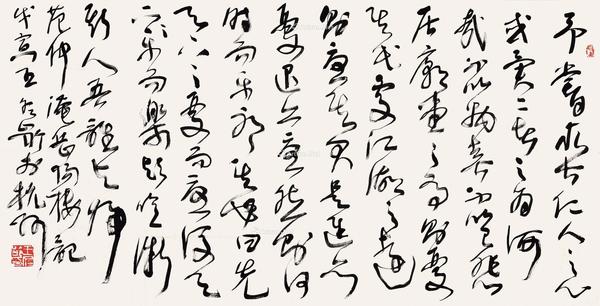 予嘗求古仁人之心
或異二者之為何
哉不以物喜不以己悲
居廟堂之高則憂
其民處江湖之遠
則憂其君是進亦
憂退亦憂然則何
時而樂耶其必曰先
天下之憂而憂後天
下之樂而樂歟噫微
斯人吾誰與歸
范仲淹岳陽樓記
戊寅王冬齡杭州